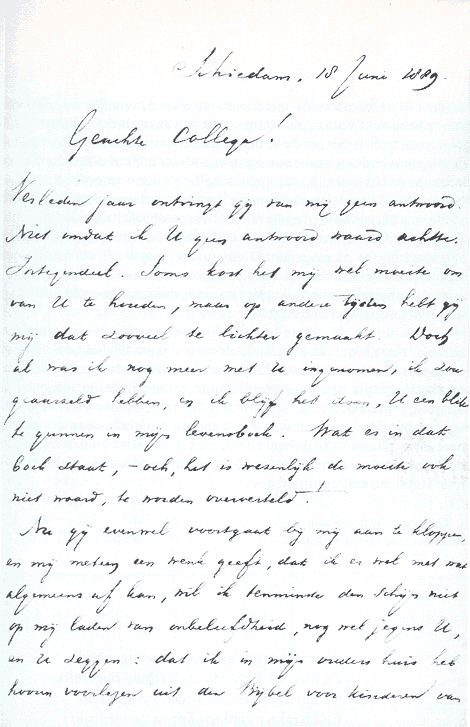 Schiedam, 18 Juni 1889.
Geachte Collega!
Verleden jaar ontvingt gij van mij geen antwoord.
Niet omdat ik U geen antwoord waard achtte.
Integendeel. Soms kost het mij wel moeite om
van U te houden, maar op andere tijden hebt gij
mij dat zooveel te lichter gemaakt. Doch
al was ik nog meer met U ingenomen, ik zou
geaarzeld hebben, en ik blijf het doen, U een blik
te gunnen in mijn levensboek. Wat er in dat
boek staat, – och, het is wezenlijk de moeite ook
niet waard, te worden oververteld!
Nu gij evenwel voortgaat bij mij aan te kloppen,
en mij meteen een wenk geeft, dat ik er wel met wat
algemeens af kan, wil ik tenminste den schijn niet
op mij laden van onbeleefdheid, nog wel jegens U,
en U zeggen: dat ik in mijn ouders huis heb
hooren voorlezen uit den Bijbel voor kinderen van